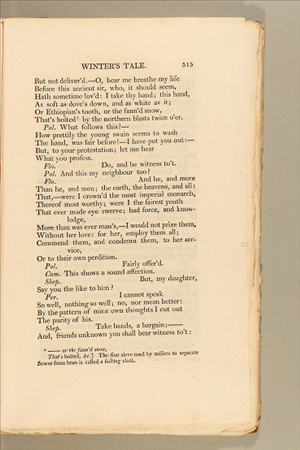 WINTER'S TALE. 515
But not deliver'd.—O, hear me breathe my life
Before this ancient sir, who, it should seem,
Hath sometime lov'd: I take thy hand; this hand,
As soft as dove's down, and as white as it;
Or Ethiopian's tooth, or the fann'd snow,
That's bolted¹ by the northern blasts twice o'er.
Pol. What follows this?—
How prettily the young swain seems to wash
The hand, was fair before!—I have put you out:—
But, to your protestation; let me hear
What you profess.
Flo. Do, and be witness to't.
Pol. And this my neighbour too?
Flo. And he, and more
Than he, and men; the earth, the heavens, and all:
That,—were I crown'd the most imperial monarch,
Thereof most worthy; were I the fairest youth
That ever made eye swerve; had force, and know-
ledge,
More than was ever man's,—I would not prize them,
Without her love: for her, employ them all;
Commend them, and condemn them, to her ser-
vice,
Or to their own perdition.
Pol. Fairly offer'd.
Cam. This shows a sound affection.
Shep. But, my daughter,
Say you the like to him?
Per. I cannot speak
So well, nothing so well; no, nor mean better:
By the pattern of mine own thoughts I cut out
The purity of his.
Shep. Take hands, a bargain;——
And, friends unknown you shall bear witness to't:
¹ —— or the fann'd snow,
That's bolted, &c.] The fine sieve used by millers to separate
flower from bran is called a bolting cloth.